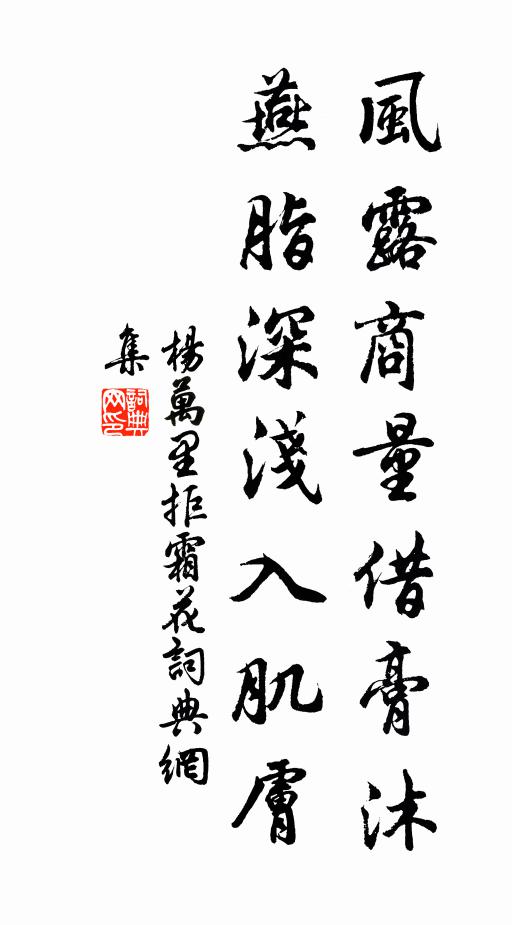 風露商量借膏沐
燕脂深淺入肌膚
楊萬里拒霜花詞典網
集
詞典網印